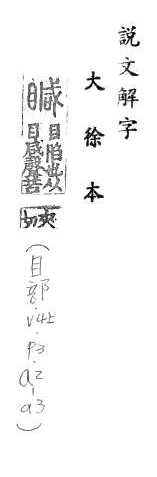 說文解字
大徐本
目陷也从
目咸聲苦
夾切
(目部·v4上·p3·a2-a3)